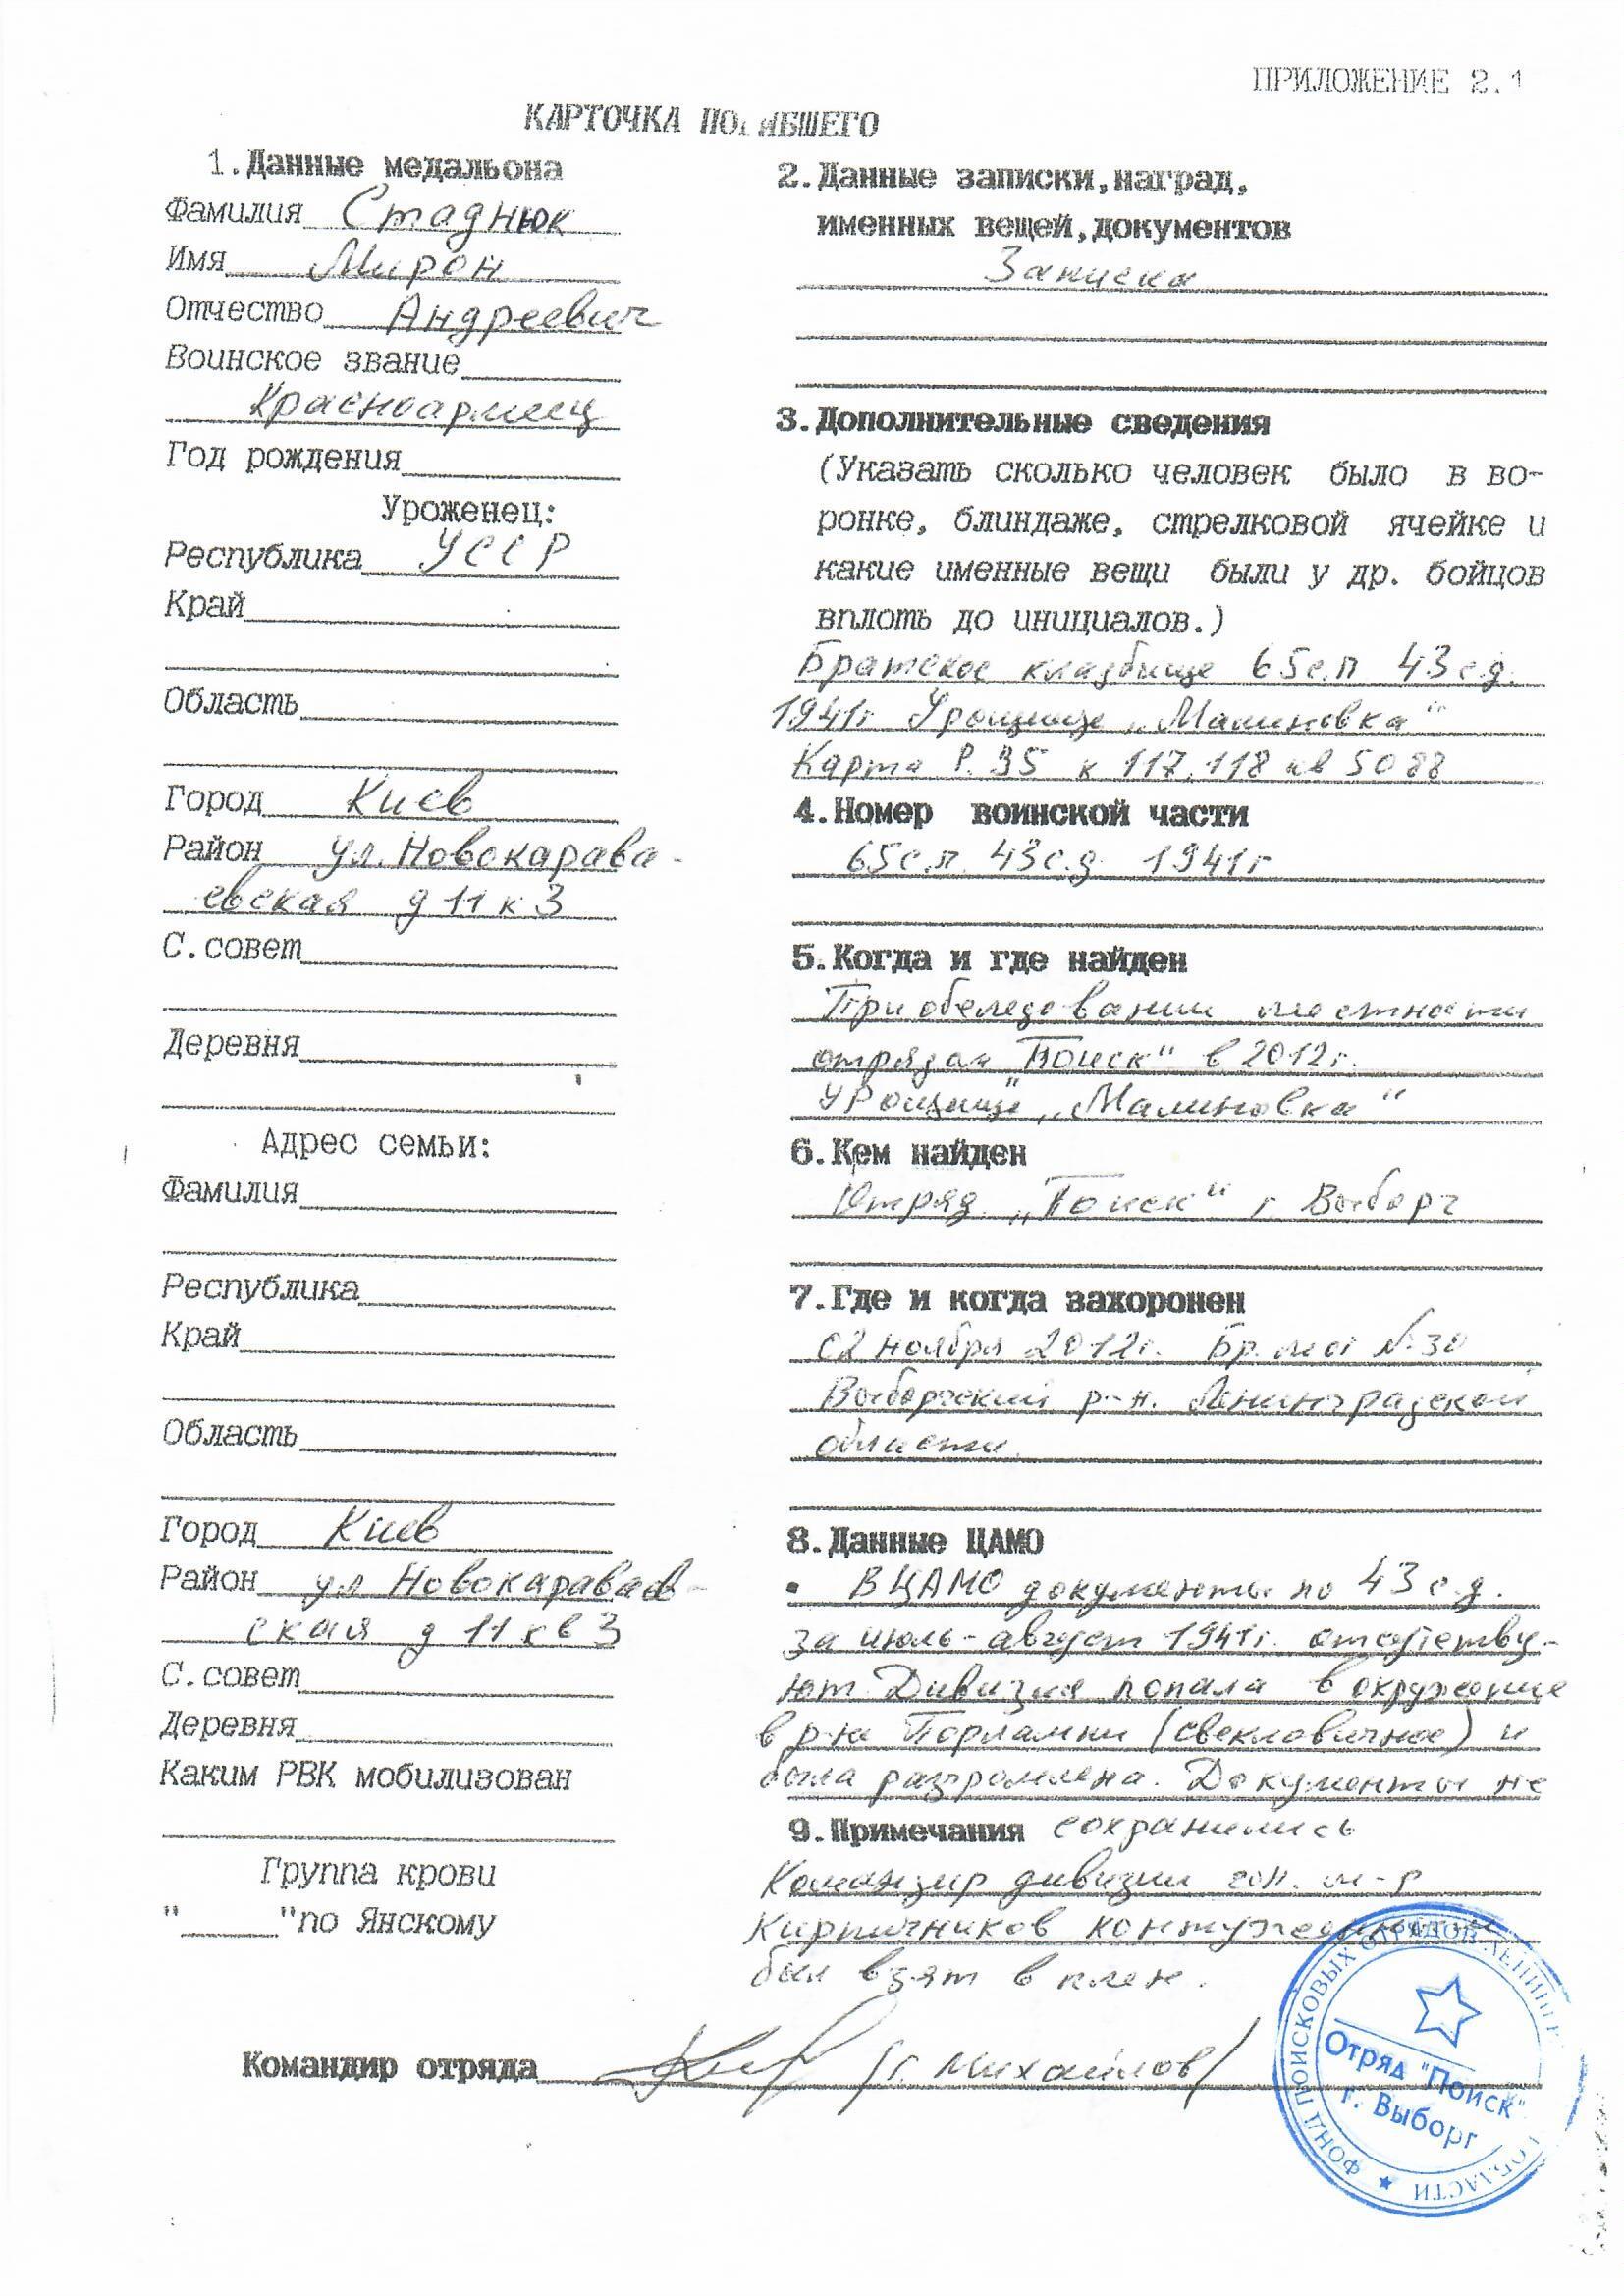 ПРИЛОЖЕНИЕ 2.1
КАРТОЧКА ПОГИБШЕГО
1.Данные медальона
Фамилия Стаднюк
Имя Мирон
Отчество Андреевич
Воинское звание
Красноармеец
Год рождения
Уроженец:
Республика УССР
Край
Область
Город Киев
Район ул. Новокарава-
евская д 11 к 3
С.совет
Деревня
Адрес семьи:
Фамилия
Республика
Край
Область
Город Киев
Район ул Новокараваев-
ская д 11 кв 3
С.совет
Деревня
Каким РВК мобилизован
Группа крови
"_____"по Янскому
2.Данные записки,наград,
именных вещей,документов
Записка
3.Дополнительные сведения
(Указать сколько человек было в во-
ронке, блиндаже, стрелковой ячейке и
какие именные вещи были у др. бойцов
вплоть до инициалов.)
Братское кладбище 65с.п 43с.д.
1941г Урочище „Малиновка"
Карта Р.35 к 117.118 кв 5088
4.Номер воинской части
65с.п. 43с.д. 1941г
5.Когда и где найден
При обследовании местности
отрядом "Поиск" в 2012г.
Урочище „Малиновка"
6.Кем найден
Отряд „Поиск" г. Выборг
7.Где и когда захоронен
02 ноября 2012г. Бр. мог №30
Выборгский р-н. Ленинградской
области.
8.Данные ЦАМО
В ЦАМО документы по 43 с.д.
за июль-август 1941г. отсутству-
ют. Дивизия попала в окружение
в р-не Порлампи (свекловичное) и
была разгромлена. Документы не
9.Примечания сохранились
Командир дивизии ген. м-р
Кирпичников контуженным
был взят в плен.
Командир отряда (г. Михайлов)
ФОНД ПОИСКОВЫХ ОТРЯДОВ ЛЕНИНГР ОБЛАСТИ
Отряд "Поиск"
г. Выборг